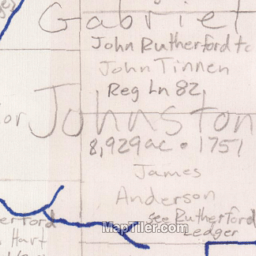 Gabriel
John Rutherford to
John Tinnen
Reg Ln 82
or Johnston
8,929ac • 1751
James
Anderson
see Rutherford
Ledger
erford
Hart
MapTiler.com